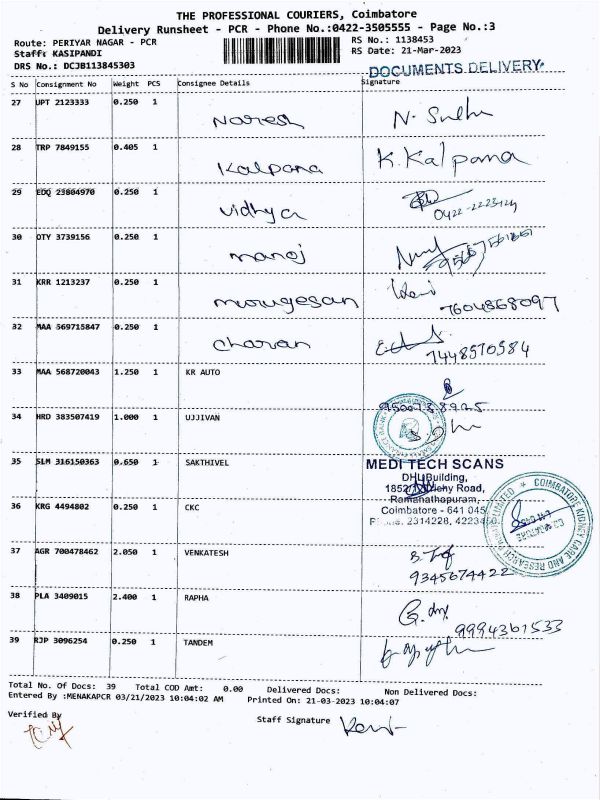 THE PROFESSIONAL COURIERS, Coimbatore
Delivery Runsheet - PCR - Phone No.:0422-3505555 - Page No.:3
Route: PERIYAR NAGAR - PCR
RS No.: 1138453
Staff: KASIPANDI
RS Date: 21-Mar-2023
DRS No.: DCJB113845303
DOCUMENTS DELIVERY
S No Consignment No Weight PCS Consignee Details Signature
27 UPT 2123333 0.250 1 Naresh
28 TRP 7849155 0.405 1 Kalpana K. Kalpana
29 EDQ 23804970 0.250 1 Vidhya
30 OTY 3739156 0.250 1 Manoj
31 KRR 1213237 0.250 1 Murugesan 7604868097
32 MAA 569715847 0.250 1 Charan 7448570584
33 MAA 568720043 1.250 1 KR AUTO
9500738925
34 HRD 383507419 1.000 1 UJJIVAN
35 SLM 316150363 0.650 1 SAKTHIVEL
MEDI TECH SCANS
DHL Building,
Road,
Ramanathapuram,
Coimbatore - 641 045
2314228,
36 KRG 4494802 0.250 1 CKC
COIMBATORE KIDNEY CARE AND RESEARCH LIMITED
COIMBATORE
37 AGR 700478462 2.050 1 VENKATESH
9345674422
38 PLA 3409015 2.400 1 RAPHA
9994361533
39 RJP 3096254 0.250 1 TANDEM
Total No. Of Docs: 39 Total COD Amt: 0.00 Delivered Docs: Non Delivered Docs:
Entered By :MENAKAPCR 03/21/2023 10:04:02 AM Printed On: 21-03-2023 10:04:07
Verified By
Staff Signature